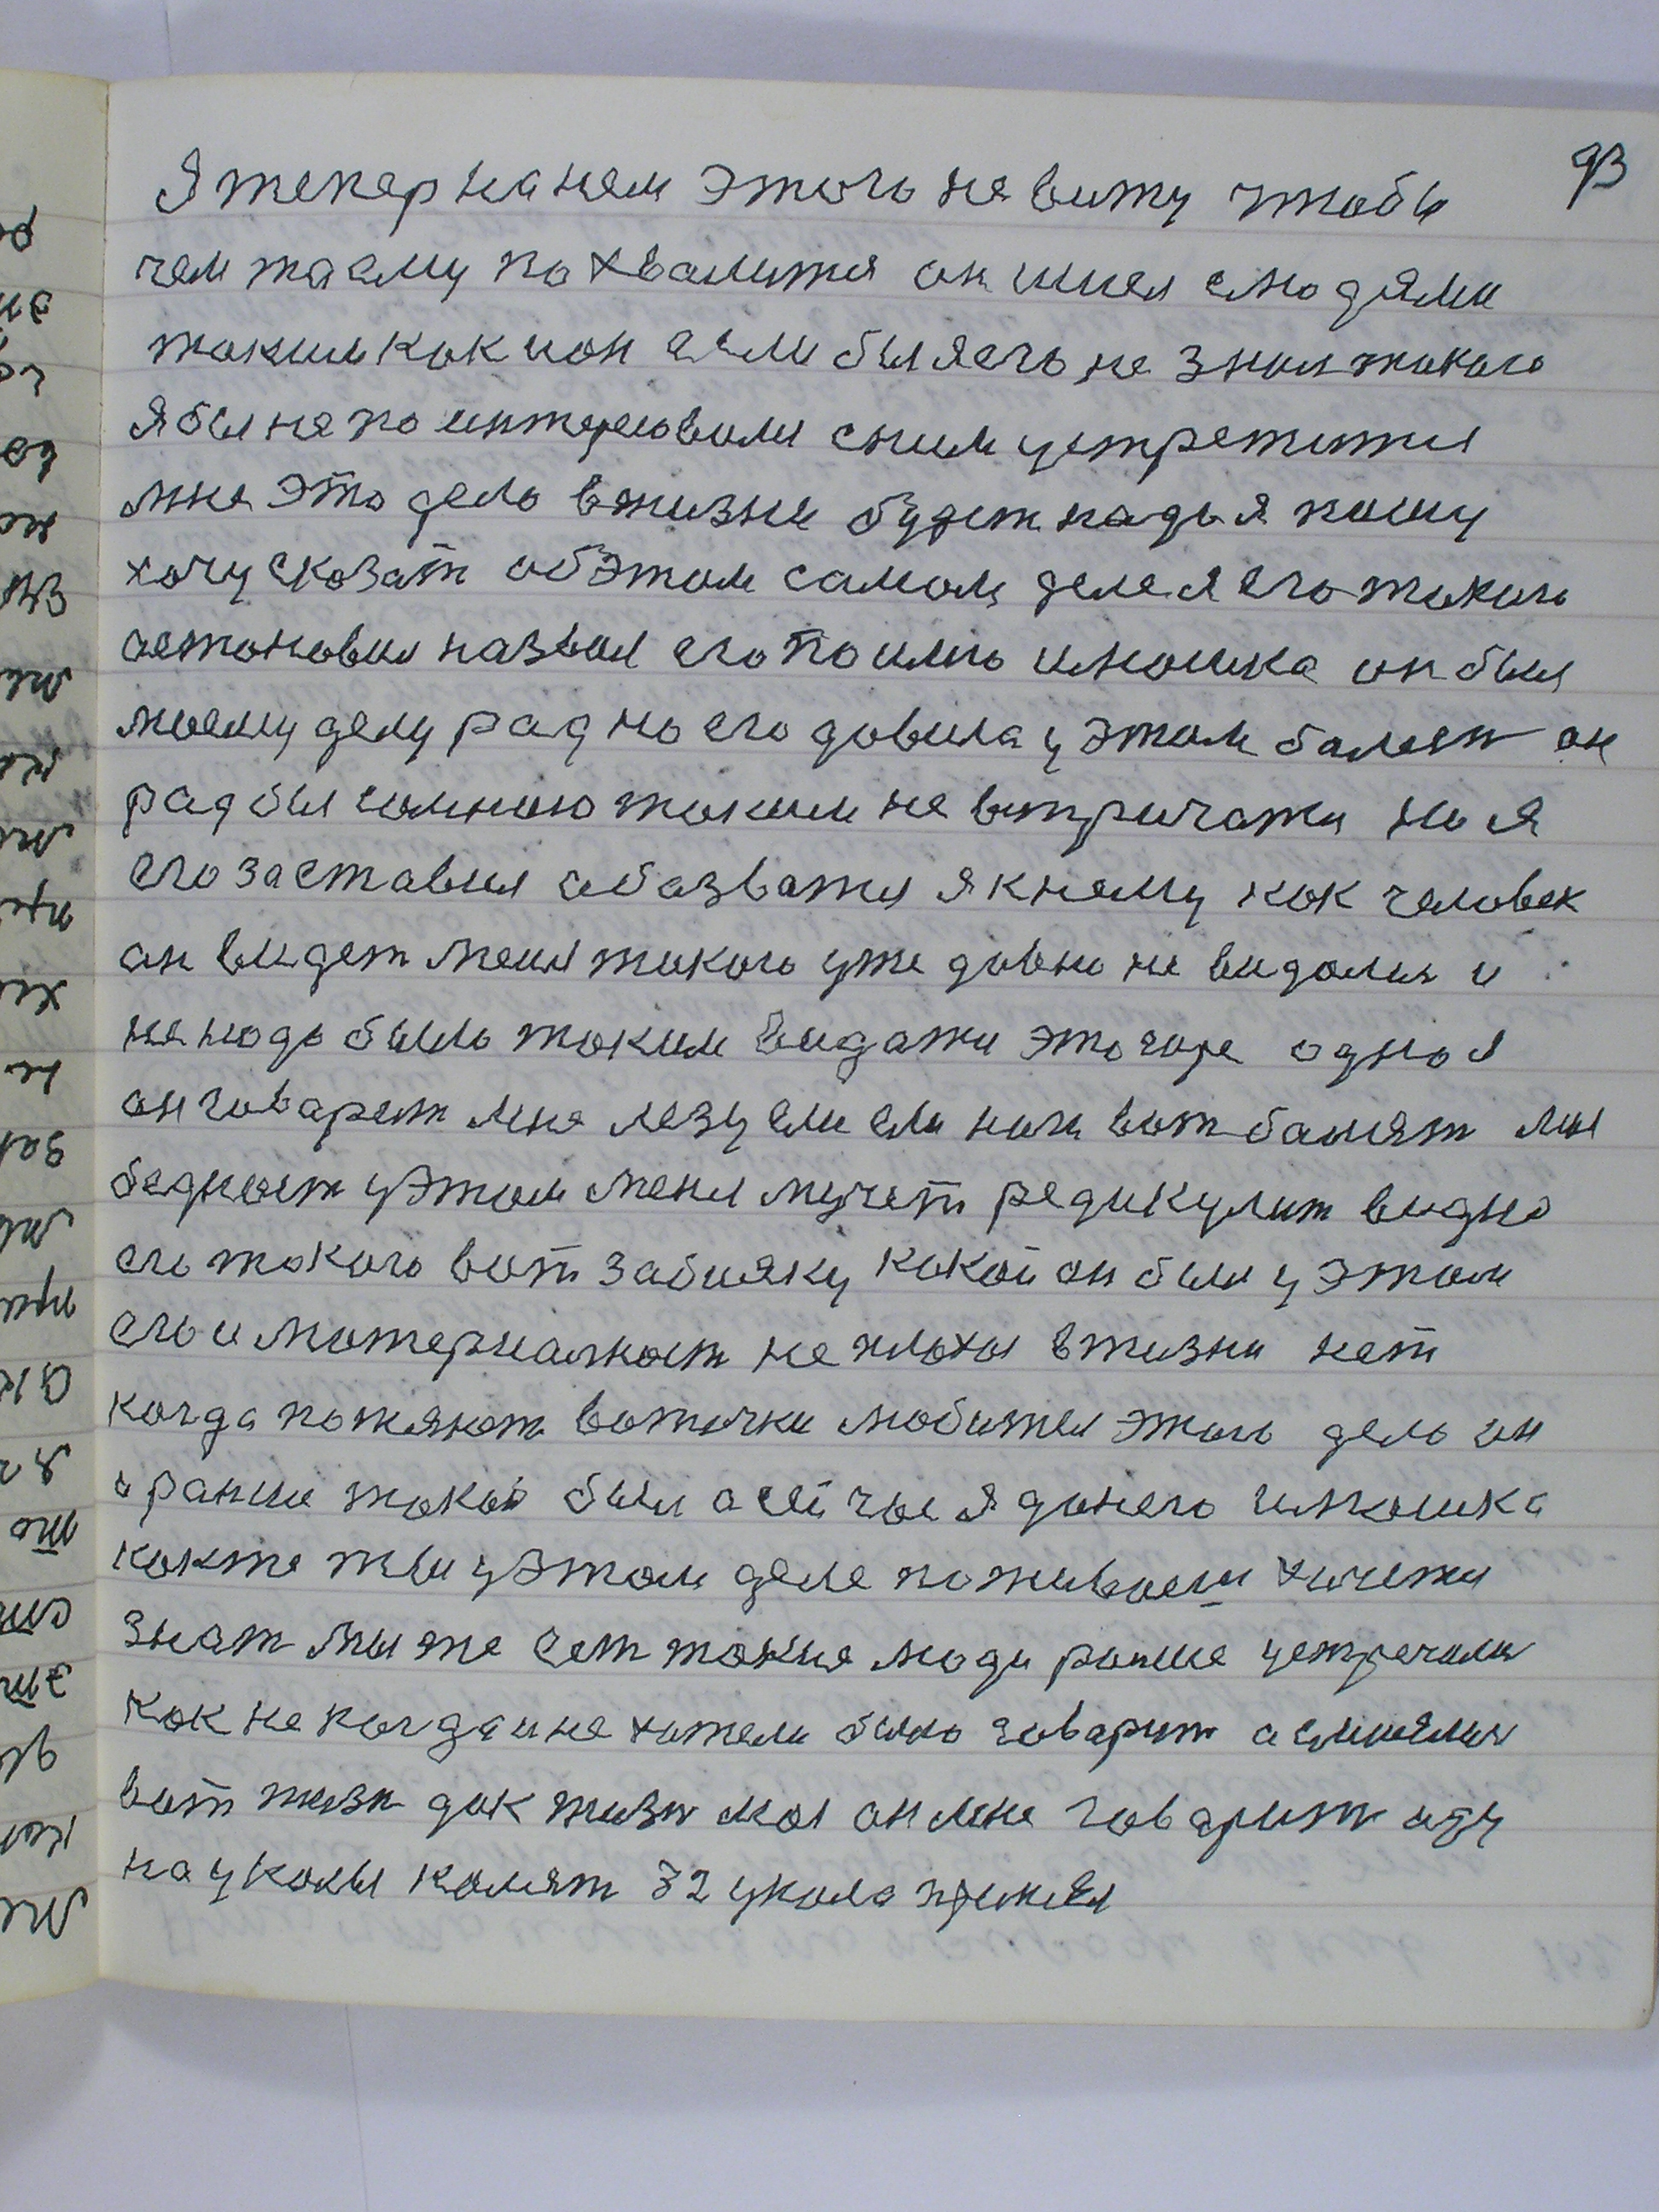 93
Я тепер на нем этого не вижу чтобы
чем то ему похвалится он шнел слюдями
таким как и он если бы я его не знал такого
я бы не по интересовалися сним устретится
мне это дело вжизне будет надо я пошу
хочу сказат об этом самом деле я его такого
астоновил назвал его по имю имошка он был
моему делу рад но его довила у этом болезн он
рад был сомною таким не втричатся но я
его заставил обазватся я кнему как человек
он видет меня такого уже довно не видалися и
не нодо было таким видатся это горе одноя
он говарет мне лезу еле еле ноги вот болят мы
беднаст у этом меня мучет редикулит видно
его такого вот забияку какой он был у этом
его и матерналност не плохая вжизни нет
когда потянют воточки любител этого дело он
и ранше такой был а сейчас я донего имошка
как же ты у этом деле поживаеш хочется
знат мы же ест такие люди ранше устречалися
как не когда и не хотели было говарит а смиялися
вот жизн дак жизн моя он мне говарит иду
на уколы колят 32 укола принял